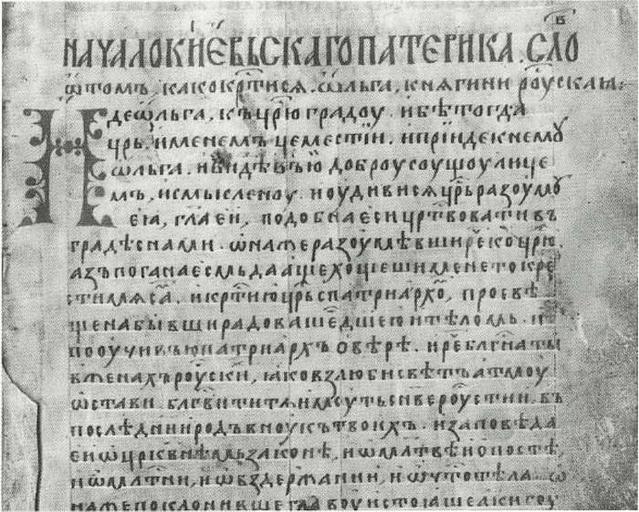 НАЧАЛОКИЕВЬСКАГОПАТЕРИКА. СЛО В҃
ѿтомъ, какокр҃тися. ѡльга, княгини роускаꙗ:
Идеѡльга, къцр҃югрáдоу. ибѣтогда
цр҃ь. именемъ цеместïи. ипрïидекнемоу
ѡльга. ивидѣвъю доброусоущоулице
мъ, исмысленоу. иоудивисяцр҃ьразоумоу
еꙗ, гл҃аеи, подобнаесицр҃твовативъ
градѣснами. ѡнажеразоумѣвширекоцр҃ю.
азъпоганаесмьдаащехощешименетокре
стимяса. икр҃тиюцр҃ьспатриáрхо, просвѣ
щенабывширадовашедшеюитѣломь. и
пооучивъюпатриархъ овѣрѣ. иреблгнаты
вженахъроускïи, ꙗковзлюбисвѣтъатмоу
ѡстави. блгвититянмсутьсивероустии. въ
послѣднииродъвноукътвоихъ. изаповѣда
еиѡцр҃квнѣмьзаконѣ, иѡмл҃твѣиопостѣ,
иѡмл҃тни, иѡвъздержании, иѡчтотѣла. ѡ
нажепоклонившегла воуистоꙗшелкигоу